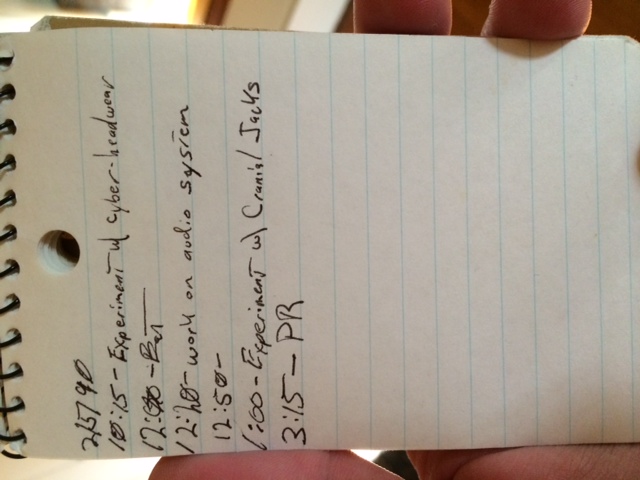 2/5/90
10:15 - Experiment w/ cyber-headwear
12:00 -
12:20 - work on audio system
12:50 -
1:00 - Experiment w/ Cranial Jacks
3:15 - PR